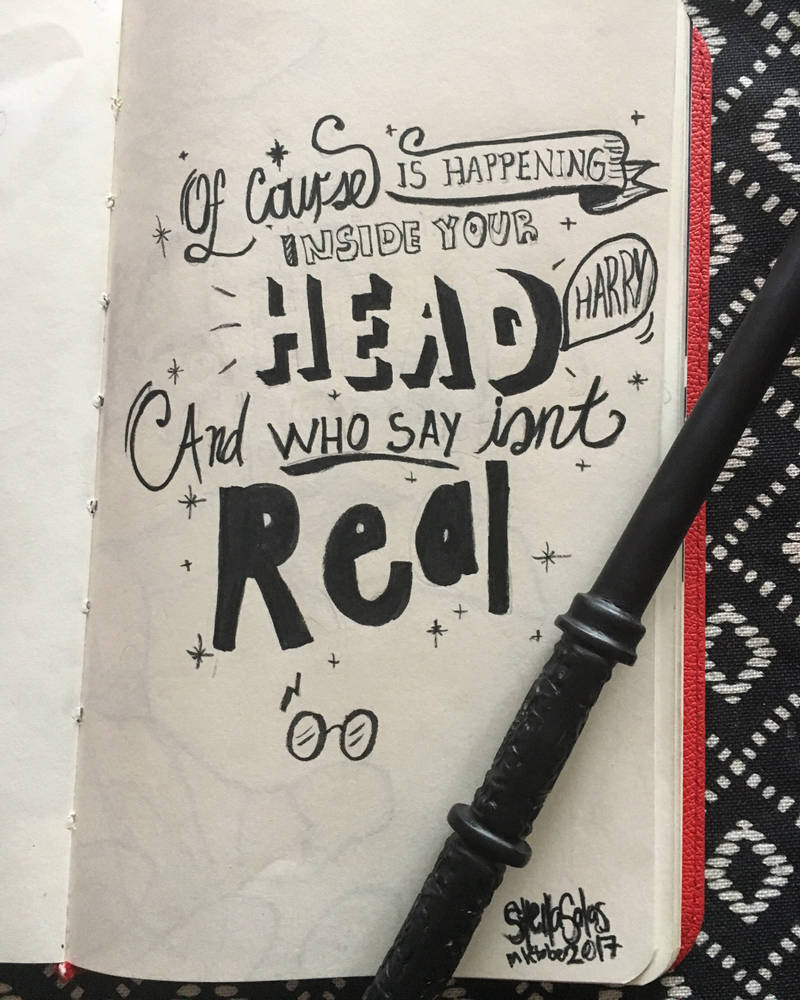 Of Course IS HAPPENING
INSIDE YOUR
HEAD HARRY
And WHO SAY isnt
Real
Inktober2017